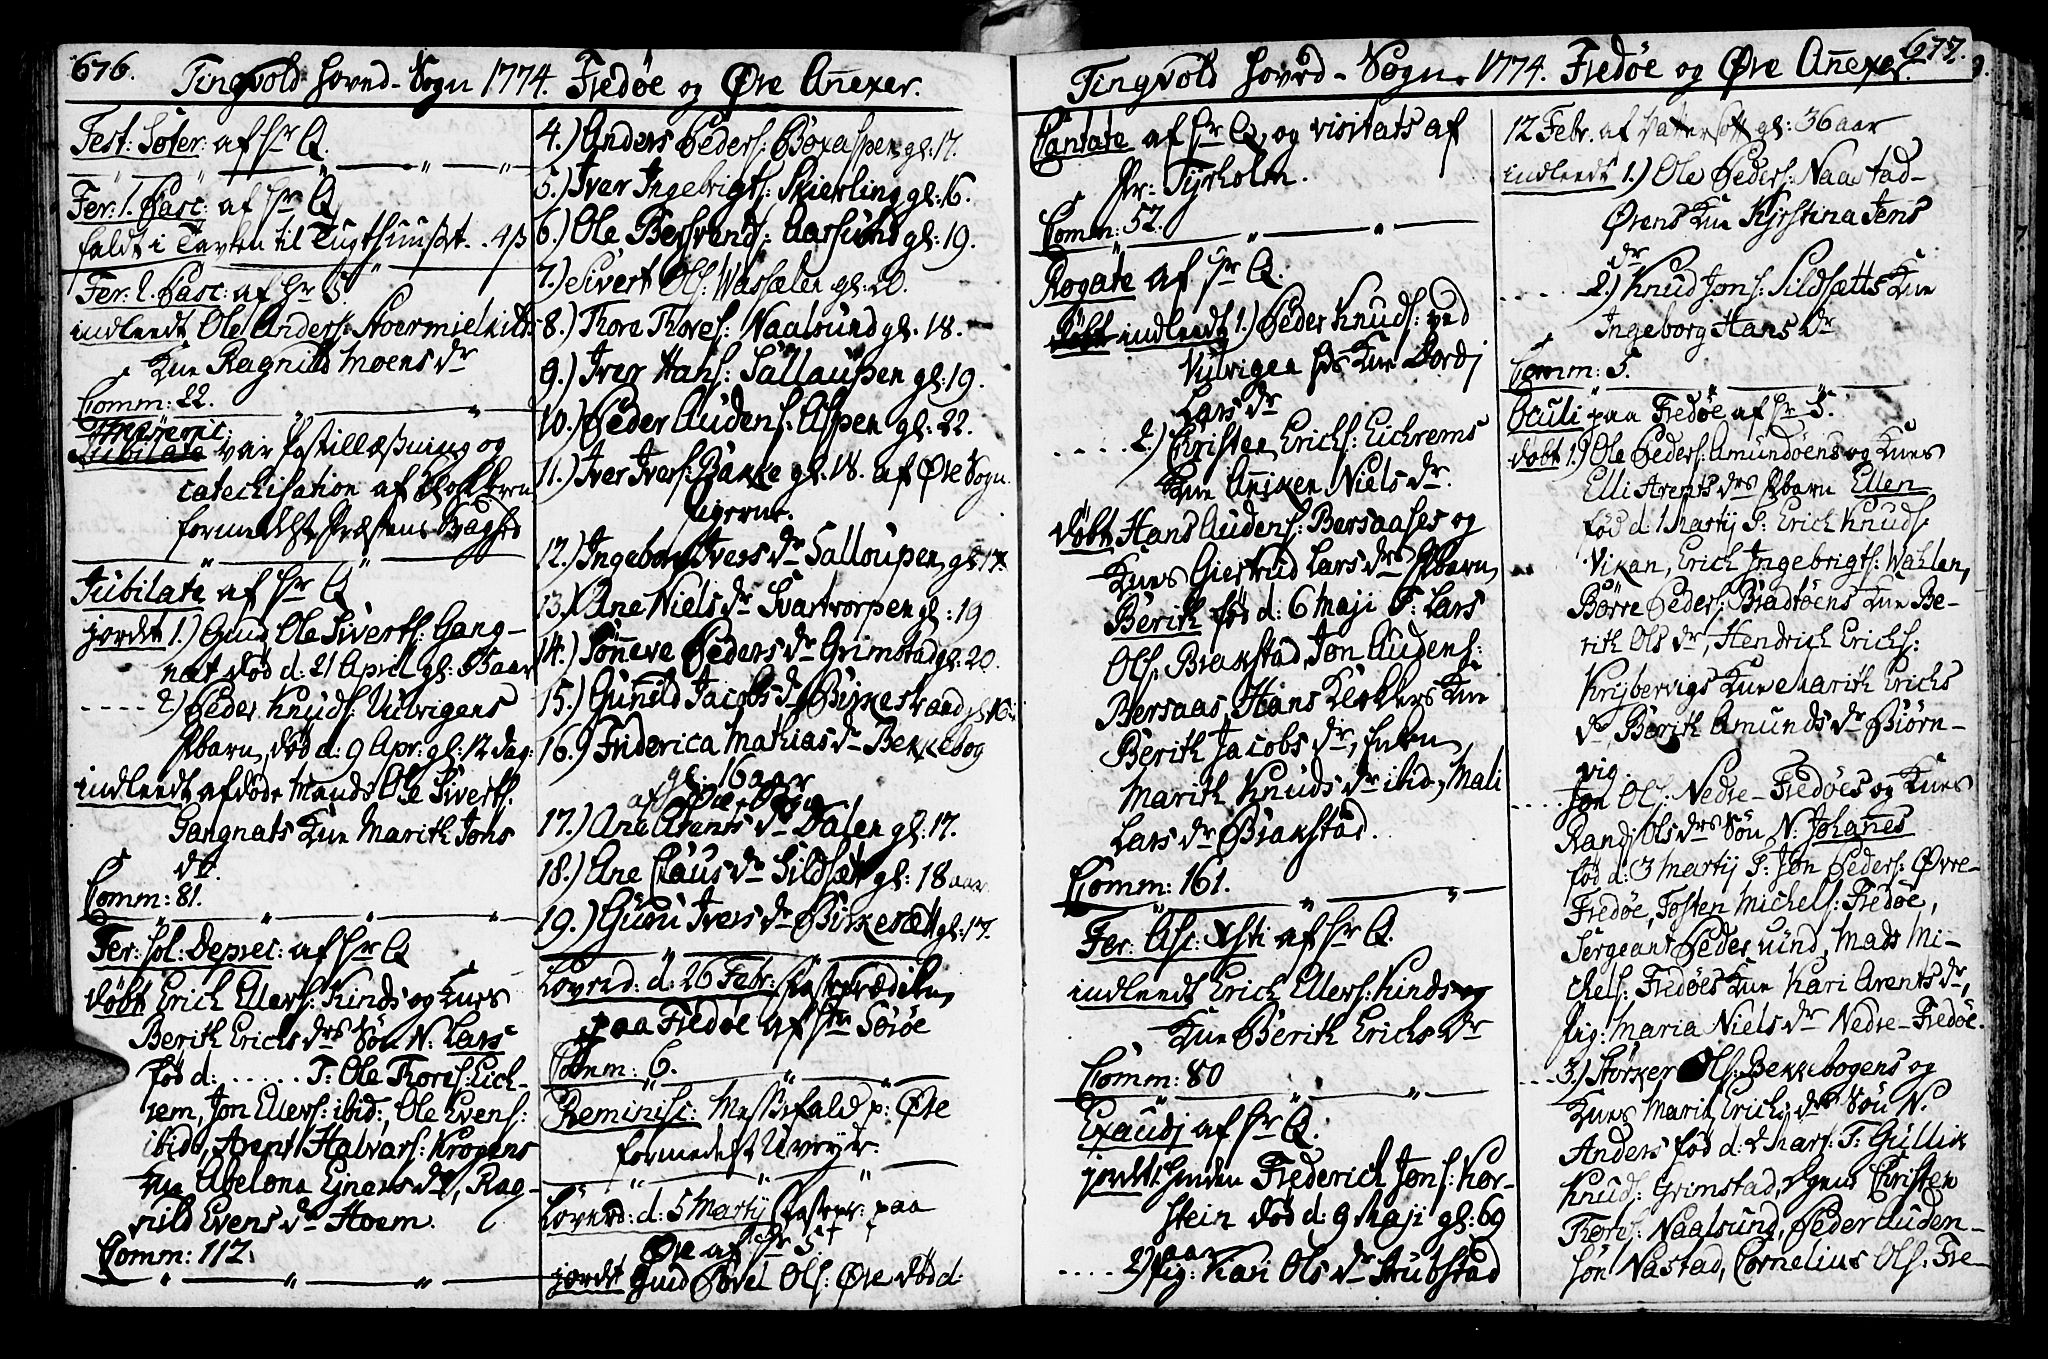 676.
Tingvold hoved-Sogn 1774. Fredøe og Øre Añexer.
Fest: Soter: af Hr Q.
Fer: 1. Pasc: af Hr Q.
faldt i Tavlen til Tugthuuset. . 4 β
Fer: 2. Pasc: af Hr S.
indleedt Ole Anders: Stoermielkildts
Kue Ragnild Moens dr
Comm: 22.
Jubilate var Postillæsning og
catechisation af Klokkeren
formedelst Præstens Svaghed
Jubilate af Hr Q
jordet 1.) Gud Ole Siverts: Gang-
nat død d: 21 April gl: aar
- - - - 2) Peder Knuds: Ulvigens
Pbarn, død d: 9 Apr: gl: 12 dag:
indleedt afdøde Mands Ole Siverts:
Gangnats Kue Marith Johs
dtr.
Comm: 81.
Fer: sol: Deprec: af Hr Q
døbt Erich Ellers: Kinds og Kues
Berith Erichs drs Søn N: Lars
fød d: . . . . . T: Ole Thores: Eich-
rem, Jon Ellers: ibid:, Ole Evens:
ibid:, Arent Halvars: Krogens
Kue Abelona Ejners dr, Rag-
nild Evens dr Hoem.
Comm: 112.
4.) Anders Peders: Boxaspen gl: 17.
5.) Iver Ingebrigts: Skierling gl: 16.
6.) Ole Bersvends: Aarsund gl: 19.
7.) Sivert Ols: Wassælen gl: 20.
8.) Thore Thores: Naalsund gl: 18.
9.) Iver Hans: Salloupen gl: 19.
10.) Peder Audens: Aspen gl: 22.
11.) Iver Ivers: Bakke gl: 18. af Øre Sogn.
Pigerne.
12.) Ingeborg Ivers dr Salloupen, gl: 17
13.) Ane Niels dr Svartvorpen gl: 19
14.) Sønneve Peders dr Grimstad gl: 20.
15.) Gunild Jacobs dr Birkestrand gl: 16
16.) Friderica Mathias dr Bekkebog
gl: 16 aar
af Øre Sogn
17.) Ane Arents dr Dalen gl: 17.
18.) Ane Claus dr Sildsæt gl: 18 aar.
19.) Guru Ivers dr Birkesæt gl: 17.
Løverd: d: 26 Febr: Fasteprædiken
paa Fredøe af Hr Sorøe
Comm: 6.
Reminisc: Messefald p: Øre
formedelst Uveyr.
Løverd: d: 5 Martij Fastepr: paa
Øre af Hr S:
jordet Gud Povel Ols: Øre død d:
677.
Tingvold Hoved-Sogn. 1774. Fredøe og Øre Añexer.
Cantate af Hr Q, og visitats af
Pr: Tyrholm.
Comm: 52.
Rogate af Hr Q.
indleedt 1.) Peder Knuds: ved
Ulvigen hds Kue Dordj
Lars dr
. . . . . 2.) Christen Erichs: Eichrems
Kue Añiken Niels dr.
døbt Hans Audens: Bersaases og
Kues Giertrud Lars drs Pbarn,
Berith fød d: 6 Maji T: Lars
Ols: Brakstad, Jon Audens:
Bersaas, Hans Klokkers Kue
Berith Jacobs dr, Enken
Marith Knuds dr ibid:, Mali
Lars dr Brakstad.
Comm: 161.
Fer: Asc: Xsti af Hr Q.
indleedt Erich Ellers: Kinds
Kue Berith Erichs dr
Comm: 80
Exaudj af Hr Q.
jordet Henden Frederich Jons: Kor-
stein død d: 9 Maji gl: 69
aar
. . . . 2) Pig: Kari Ols dr Strubstad
12 Febr. af gl: 36 aar
indleedt 1.) Ole Peders: Naastad-
Ørens Kue Kirstina Jens
dr
. . . . . 2.) Knud Jons: Sildsætts Kue
Ingeborg Hans dr
Comm: 5.
Oculi paa Fredøe af Hr S.
døbt 1.) Ole Peders: Amundøens og Kues
Elli Arents drs Pbarn Ellen
fød d: 1 Martij T: Erich Knuds:
Vikan, Erich Ingebrigts: Wahlen,
Børre Peders: Bradtøens Kue Be-
rith Ols dr, Hendrich Erichs:
Krijbervigs Kue Marith Erichs
dr, Berith Amunds dr Biørn-
vig.
. . . . Jon Ols: Nedre-Fredøes og Kues
Randj Ols drs Søn N: Johañes
fød d: 3 Martij T: Jon Peders: Øvre-
Fredøe, Tosten Michels: Fredøe,
Sergeant Peder Uind, Mads Mi-
chels: Fredøes Kue Kari Arents dr,
Pig: Maria Niels dr Nedre-Fredøe.
. . . . 3.) Størker Ols: Bekkebogens og
Kues Marit Erichs drs Søn N.
Anders fød d: 2 Mart: T: Gullik
Knuds: Grimstad, Christen
Thores: Naalsund, Peder Auden-
søn Nastad, Cornelius Ols: Fre-